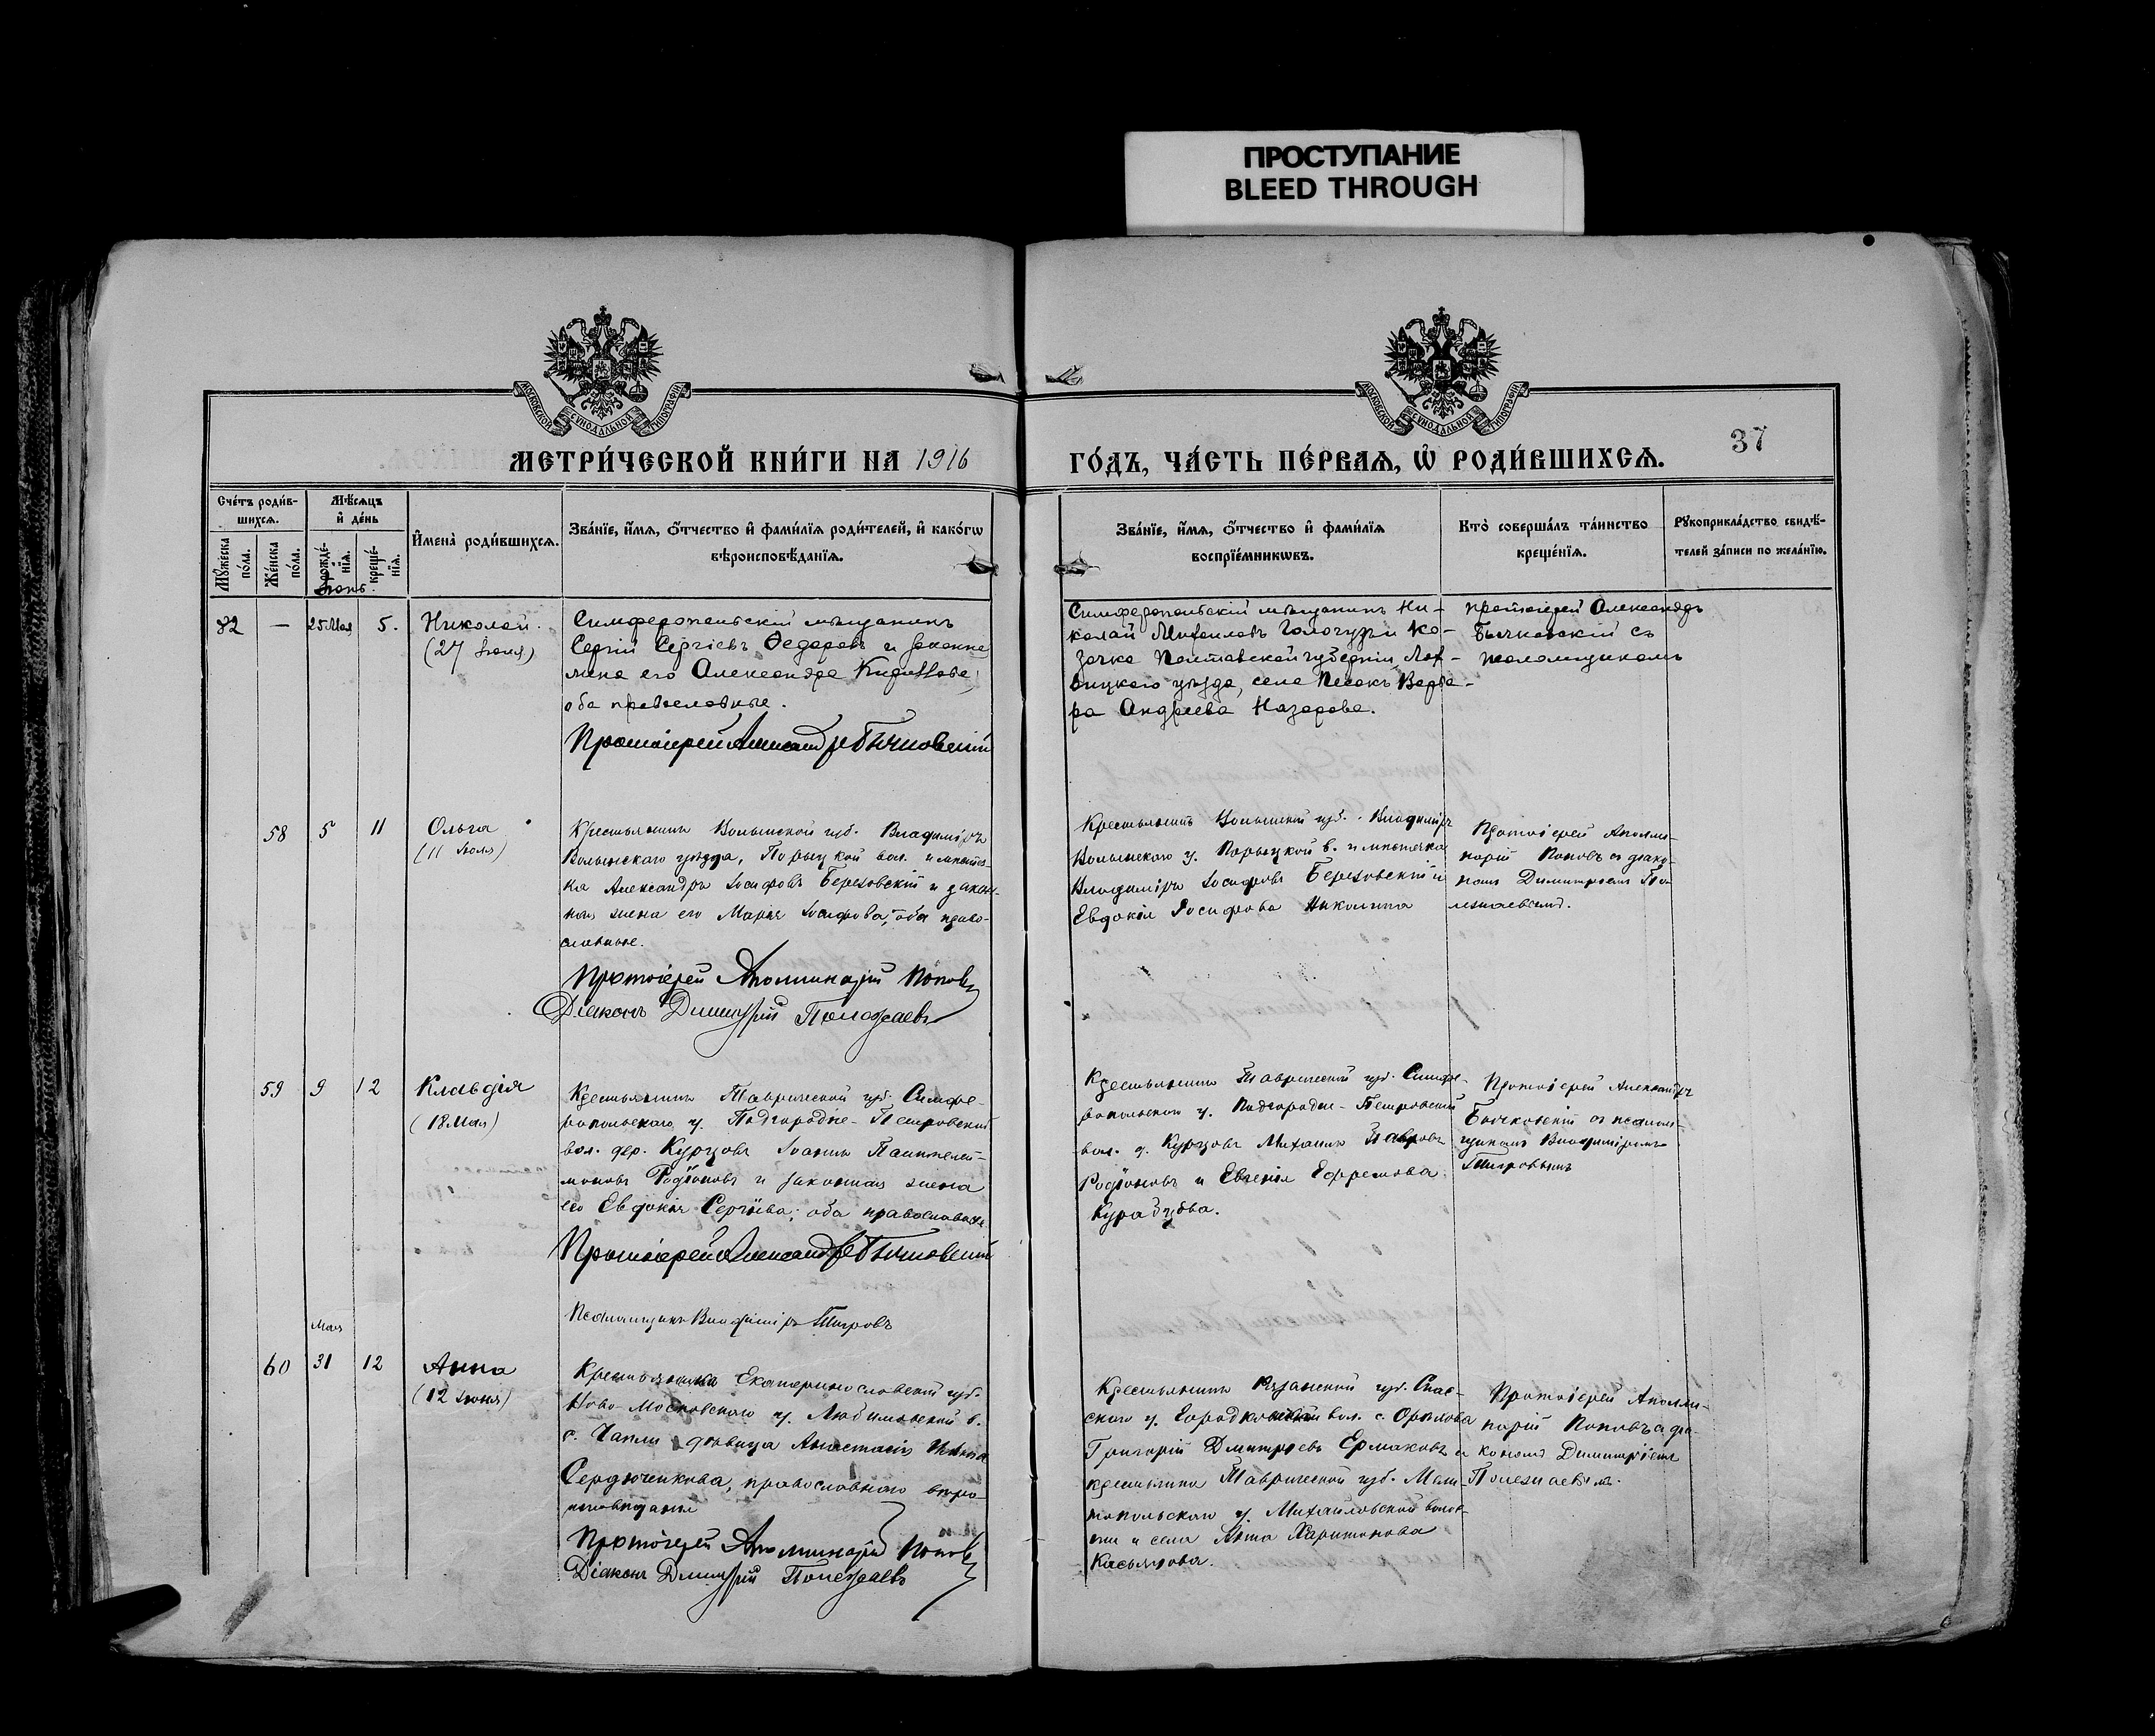 ПРОСТУПАНИЕ
BLEED THROUGH
МОСКОВСКОЙ СѴНОДАЛЬНОЙ ТИПОГРАФІИ
МОСКОВСКОЙ СѴНОДАЛЬНОЙ ТИПОГРАФІИ
МЕТРИ́ЧЕСКОЙ КНИ́ГИ НА 1916
ГО́ДЪ, ЧА́СТЬ ПЕ́РВАѦ, Ѽ РОДИ́ВШИХСѦ.
37
Сче́тъ роди́в-
шихсѧ.
Мꙋ́жеска по́ла.
Же́нска по́ла.
Мѣ́сѧцъ
и҆ де́нь
рожде́нїѧ.
креще́нїѧ.
И҆мена̀ роди́вшихсѧ.
Зва́нїе, и҆́мѧ, ѻ҆́тчество и҆ фами́лїѧ роди́телей, и҆ како́гѡ
вѣроисповѣ́данїѧ.
Зва́нїе, и҆́мѧ, ѻ҆́тчество и҆ фами́лїѧ
воспрїе́мникѡвъ.
Кто̀ соверша́лъ та́инство
креще́нїѧ.
Рꙋкоприкла́дство свидѣ́-
телей за́писи по жела́нїю.
82
—
25 Мая
5.
Николай.
Симферопольскій мѣщанинъ
Сергій Сергіевъ Ѳедоровъ и законна
жена его Александра Кириллова,
оба православные.
Протоіерей Александръ Бычковскій
Симферопольскій мѣщанинъ Ни-
колай Михаиловъ Гологузъ и ка-
зачка Полтавской губерніи, Лох-
вицкаго уѣзда, села Песокъ Варва-
ра Андреева Назарова.
протоіерей Александръ
Бычковскій съ
псаломщикомъ
58
5
11
Ольга
(11 Іюля)
Крестьянинъ Волынской губ. Владиміръ
Волынскаго уѣзда, Порыцкой вол. и мѣстеч
ка Александръ Іосифовъ Березовскій и закон-
ная жена его Марія Іосифова; оба право-
славные.
Протоіерей Аполлинарій Поповъ
Діаконъ Димитрій Полежаевъ
Крестьянинъ Волынской губ. Владимір
Волынскаго у. Порыцкой в. и мѣстечка
Владиміръ Іосифовъ Березовскій и
Евдокія Іосифова Николина
Протоіерей Аполли-
нарій Поповъ съ діако-
номъ Димитріемъ По-
лежаевымъ.
59
9
12
Клавдія
(18 Мая)
Крестьянинъ Таврической губ. Симфе-
ропольскаго у. Подгородне-Петровской
вол. дер. Курцовъ Іоаннъ Пантелей-
моновъ Родіоновъ и законная жена
его Евдокія Сергіева; оба православные
Протоіерей Александръ Бычковскій
Псаломщикъ Владиміръ
Крестьянинъ Таврической губ. Симфе-
ропольскаго у. Подгородне-Петровской
вол. д. Курцовъ Михаилъ
Родіоновъ и Евгенія Ефремова
Протоіерей Александръ
Бычковскій съ псалом-
щикомъ Владиміромъ
Мая
60
31
12
Анна
Крестьянка Екатеринославской губ.
Ново-Московскаго у. Любимовской в.
с. Чапли дѣвица Анастасія
Сердюченкова, православнаго вѣро-
исповѣданія
Протоіерей Аполлинарій Поповъ
Діаконъ Димитрій Полежаевъ
Крестьянинъ Рязанской губ. Спас-
скаго у. Городковской вол. с. Орѣхова
Григорій Дмитріевъ Ермаковъ и
крестьянка Таврической губ. Мели-
топольскаго у. Михайловской волос-
ти и села Анна Харитонова
Касьянова.
Протоіерей Аполли-
нарій Поповъ съ діа-
кономъ Димитріемъ
Полежаевымъ.